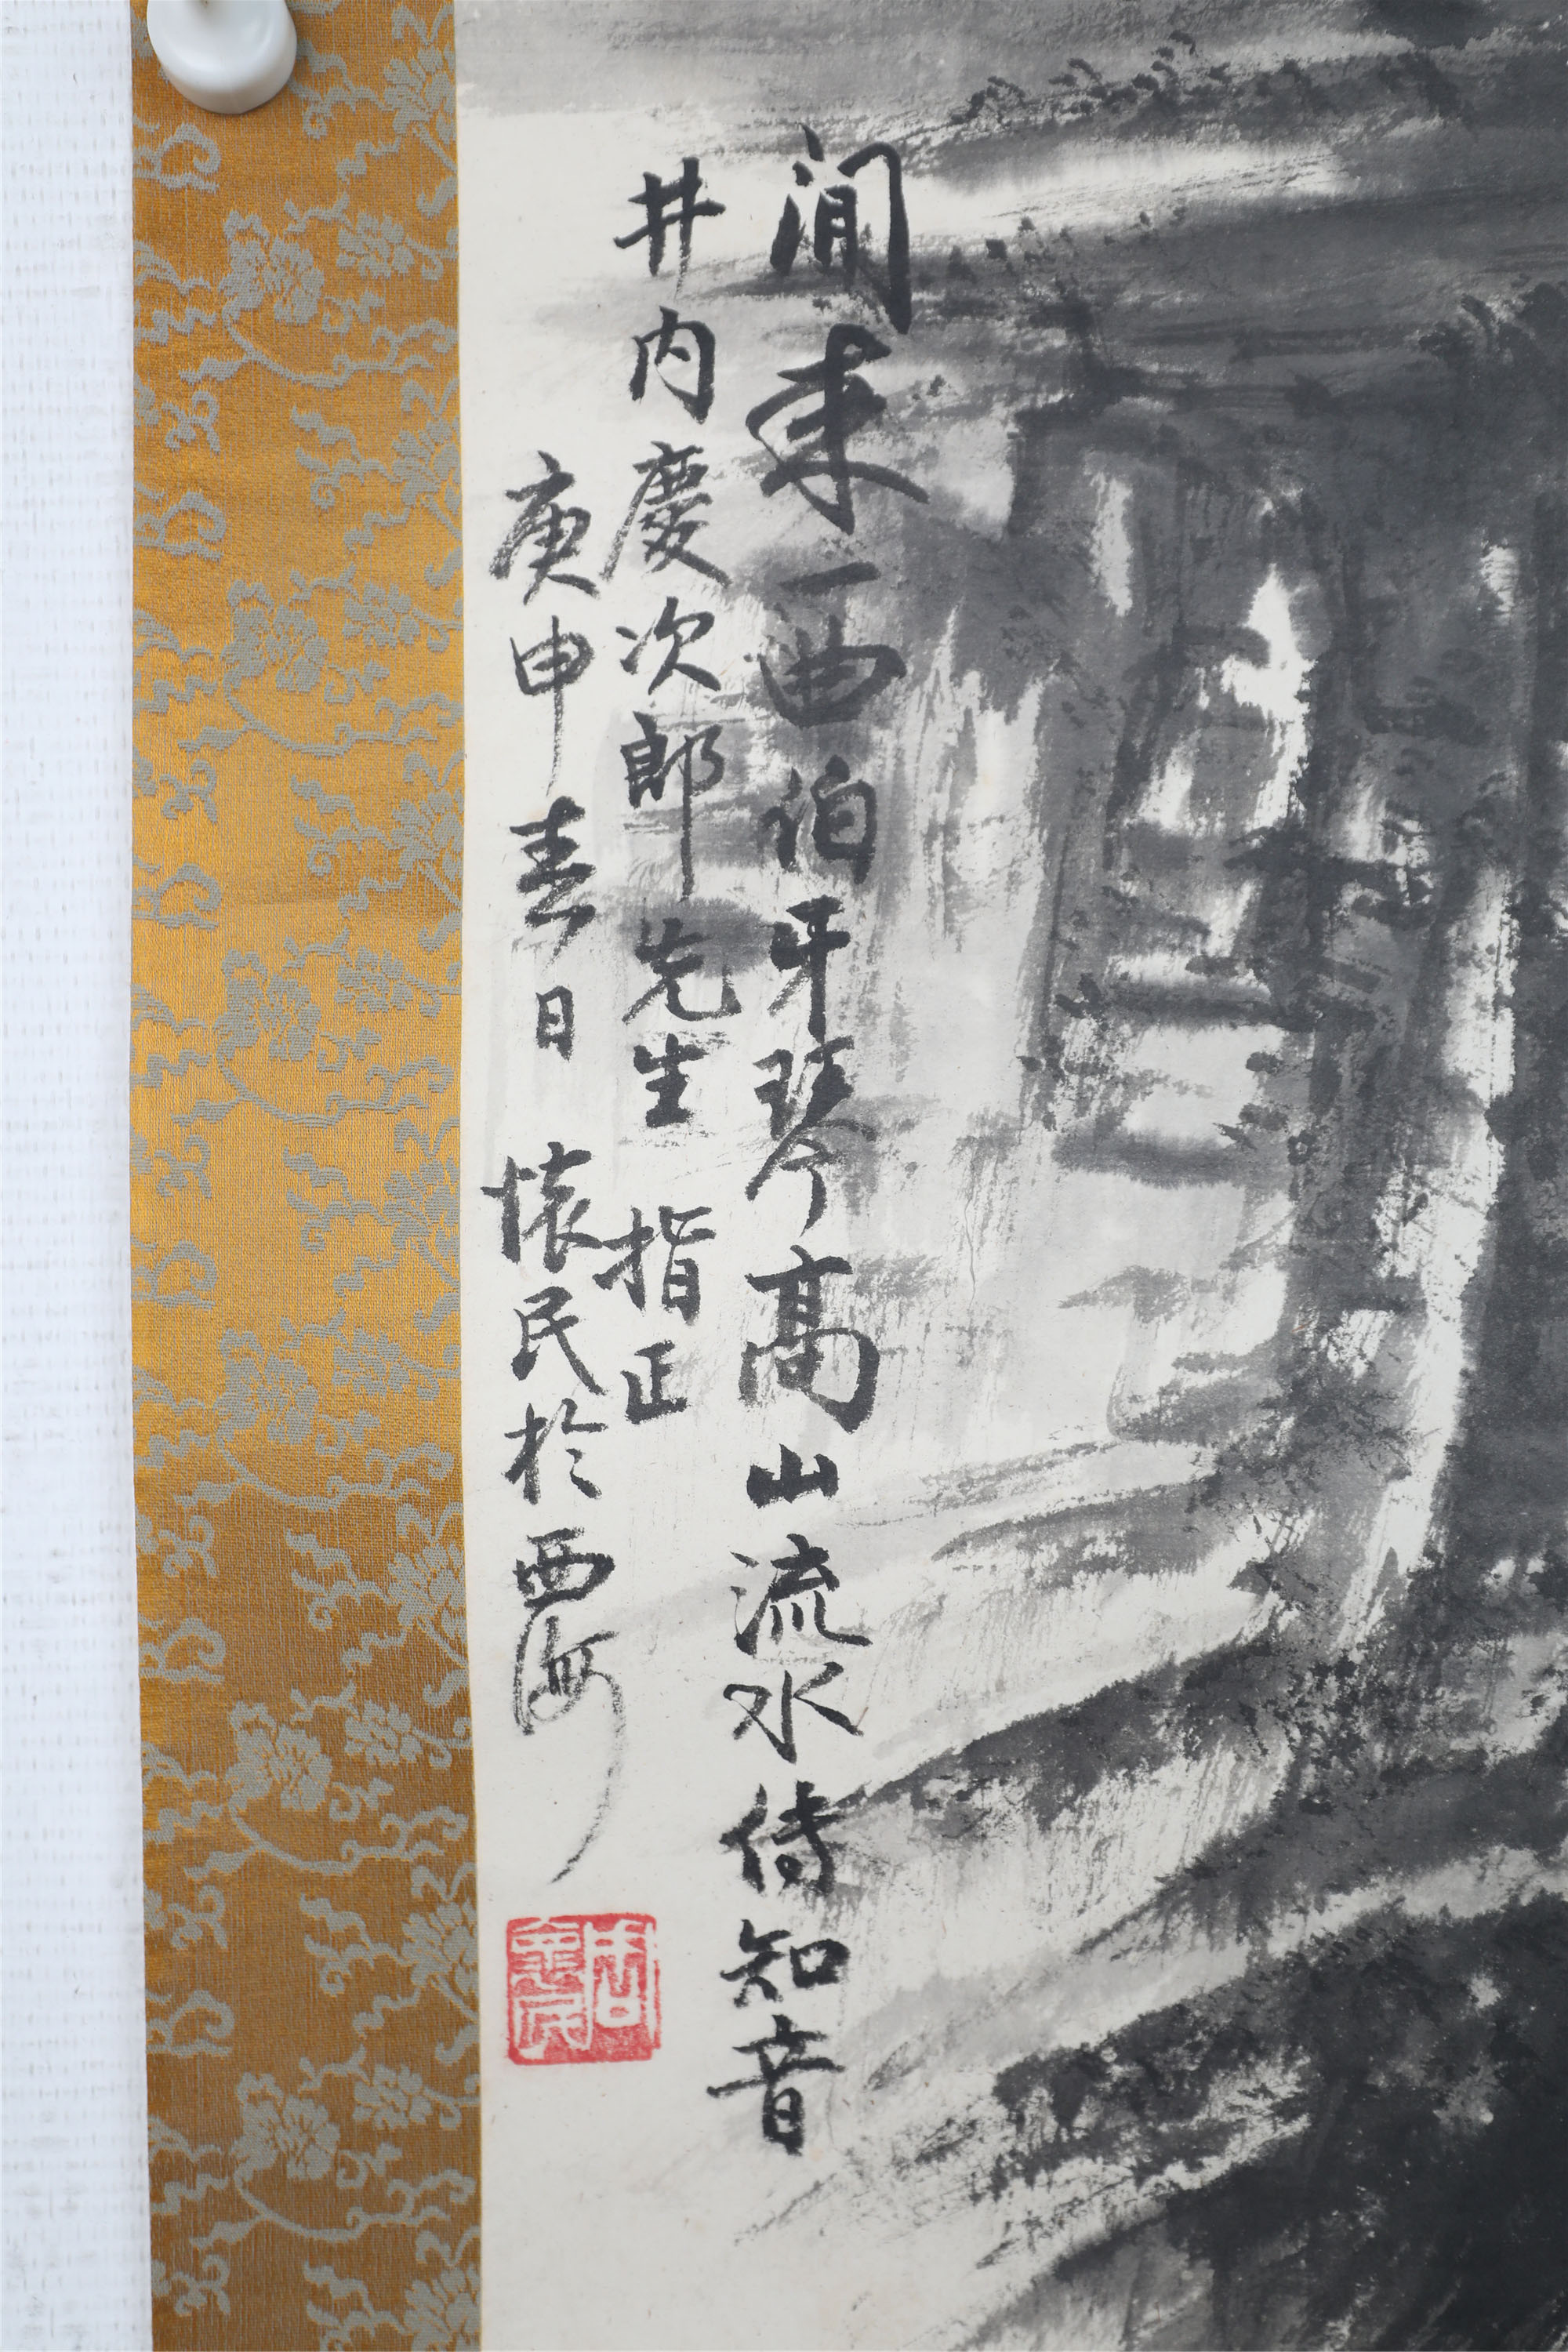 閒來一曲伯牙琴高山流水待知音
井内慶次郎先生 指正
庚申春日 懷民於西海
周懷民